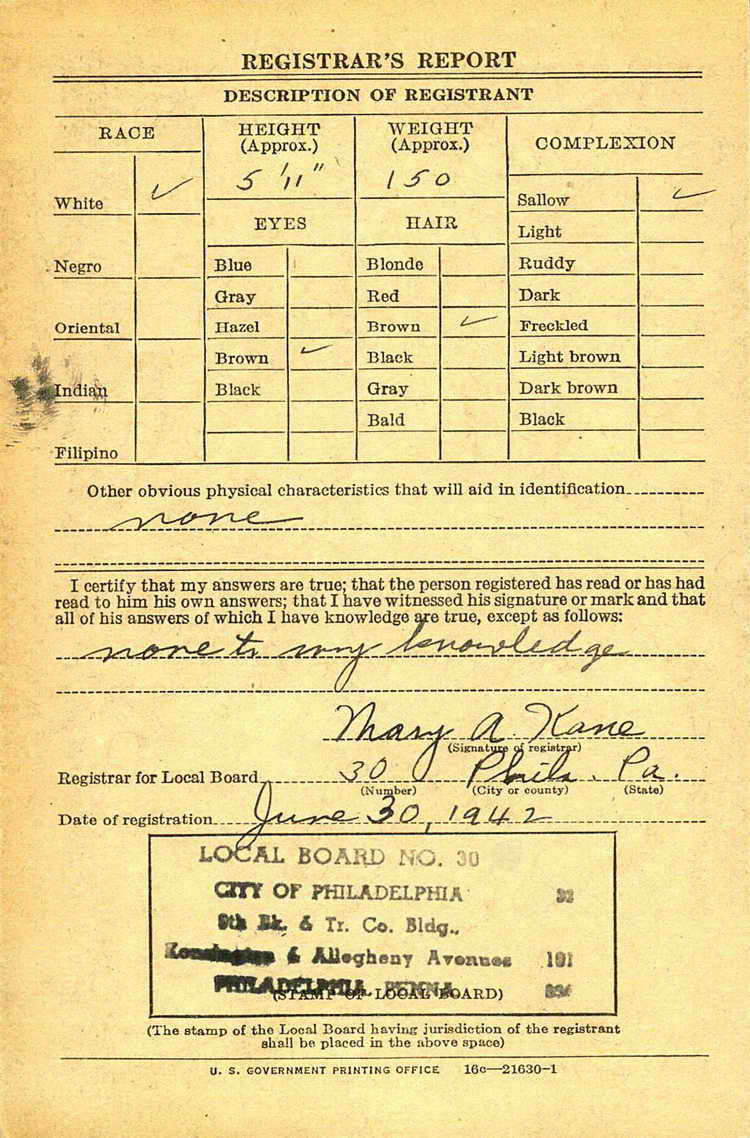 REGISTRAR'S REPORT
DESCRIPTION OF REGISTRANT
RACE
HEIGHT
(Approx.)
WEIGHT
(Approx.)
COMPLEXION
5' 11"
150
White ✓
Sallow ✓
EYES
HAIR
Light
Negro
Blue
Blonde
Ruddy
Gray
Red
Dark
Oriental
Hazel
Brown ✓
Freckled
Brown ✓
Black
Light brown
Indian
Black
Gray
Dark brown
Bald
Black
Filipino
Other obvious physical characteristics that will aid in identification
none
I certify that my answers are true; that the person registered has read or has had
read to him his own answers; that I have witnessed his signature or mark and that
all of his answers of which I have knowledge are true, except as follows:
none to my knowledge
Mary A. Kane
(Signature of registrar)
Registrar for Local Board 30 Phila. Pa.
(Number) (City or county) (State)
Date of registration June 30, 1942
LOCAL BOARD NO. 30
CITY OF PHILADELPHIA
9th Bk. & Tr. Co. Bldg.,
Kensington & Allegheny Avenues 101
PHILADELPHIA, PENNA.
(STAMP OF LOCAL BOARD)
(The stamp of the Local Board having jurisdiction of the registrant
shall be placed in the above space)
U. S. GOVERNMENT PRINTING OFFICE 16c—21630-1